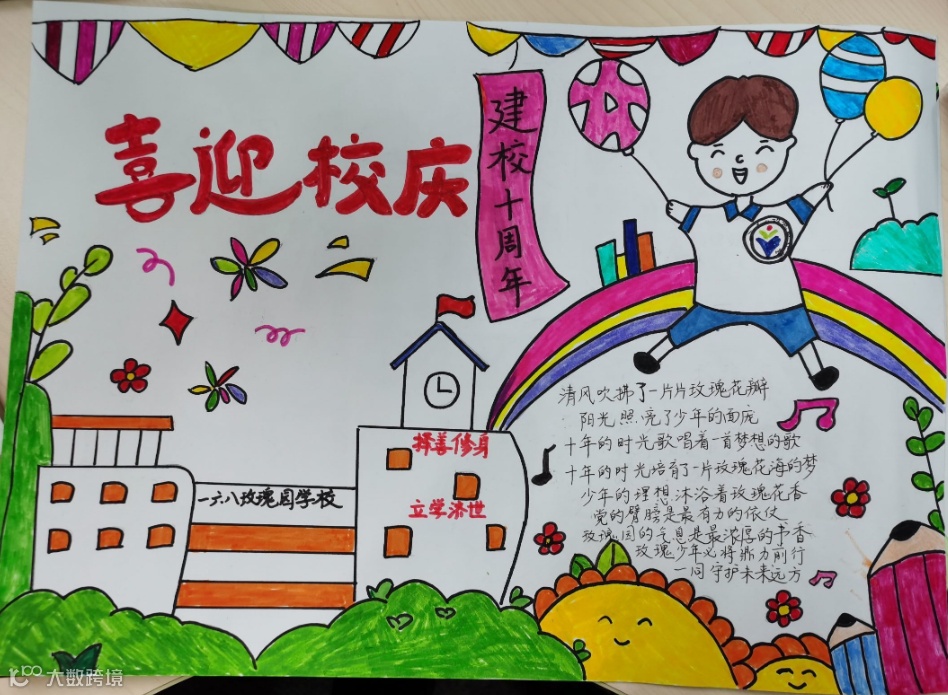 喜迎校庆
建校十周年
择善修身
立学济世
一六八玫瑰园学校
清风吹拂了一片片玫瑰花瓣
阳光照亮了少年的面庞
十年的时光歌唱着一首梦想的歌
十年的时光培育了一片玫瑰花海的梦
少年的理想沐浴着玫瑰花香
党的臂膀是最有力的依仗
玫瑰园的气息是最浓厚的书香
玫瑰少年必将携力前行
一同守护未来远方
大数跨境